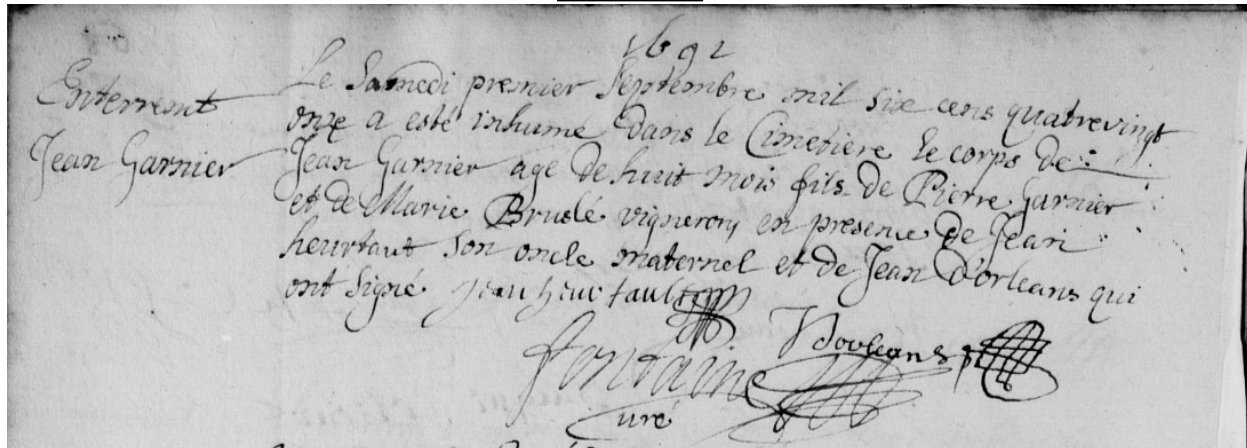 1692
Enterremt
Jean Garnier
Le Samedi premier Septembre mil six cens quatrevingt
onze a esté inhumé dans le Cimetière le corps de
Jean Garnier agé de huit mois fils de Pierre Garnier
et de Marie Bruslé vigneron en presence de Jean
heurtaut son oncle maternel et de Jean D'orleans qui
ont signé Jean heurtault
J Dorleans
fontaine
curé